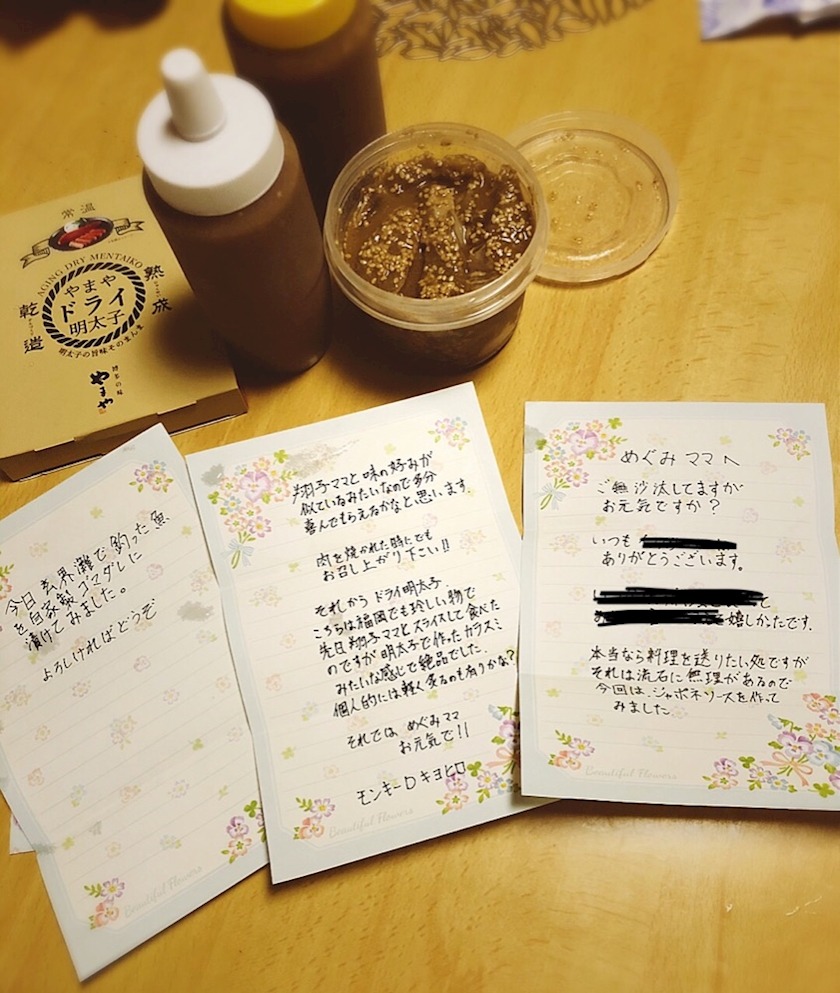 常温
AGING DRY MENTAIKO
熟成
乾造
やまや
ドライ
明太子
明太子の旨味そのまんま
博多の味
やまや
めぐみママへ
ご無沙汰してますが
お元気ですか？
いつも
ありがとうございます。
て
嬉しかったです。
本当なら料理を送りたい処ですが
それは流石に無理があるので
今回は、ジャポネソースを作って
みました。
Beautiful Flowers
翔子ママと味の好みが
似ているみたいなので多分
喜んでもらえるかなと思います。
肉を焼かれた時にでも
お召し上がり下さい!!
それから ドライ明太子
こちらは福岡でも珍しい物で
先日翔子ママとスライスして食べた
のですが明太子で作ったカラスミ
みたいな感じで絶品でした。
個人的には軽く炙るのも有りかな?
それでは めぐみママ
お元気で!!
モンキーD キヨヒロ
Beautiful Flowers
今日玄界灘で釣った魚
を自家製ゴマダレに
漬けてみました。
よろしければどうぞ
Beautiful Flowers